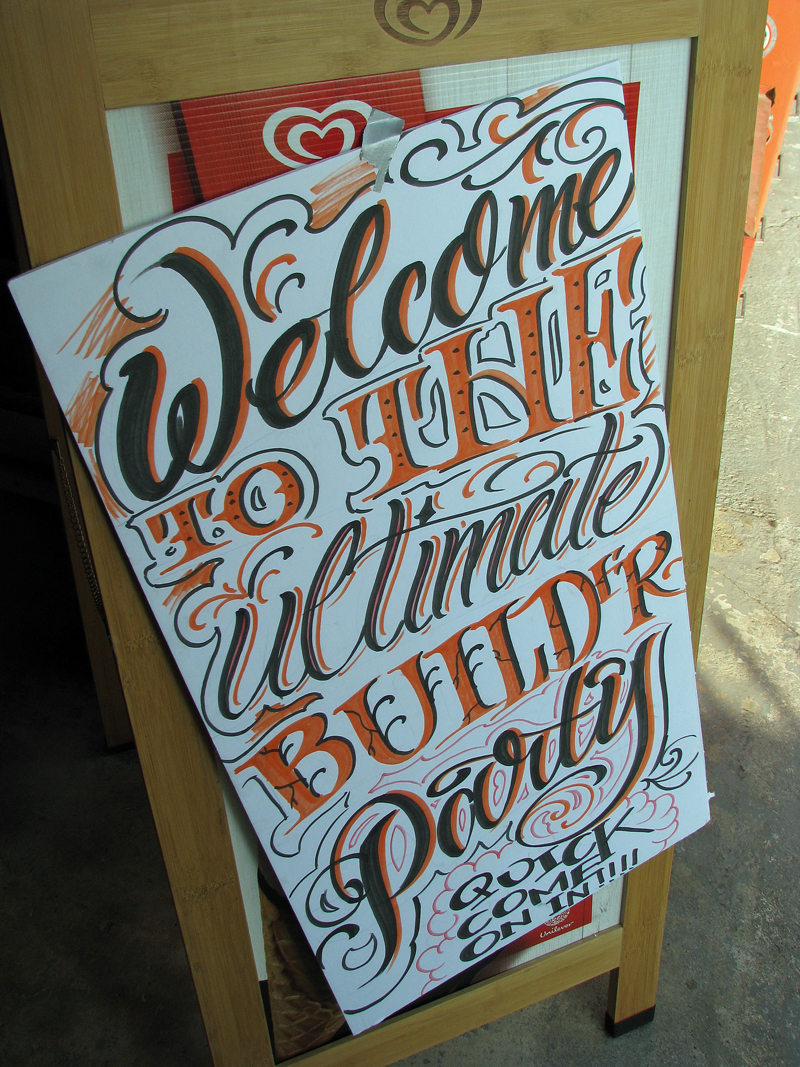 Welcome
TO THE
ultimate
BUILDER
Party
QUICK
COME
ON IN!!!!
Unilever